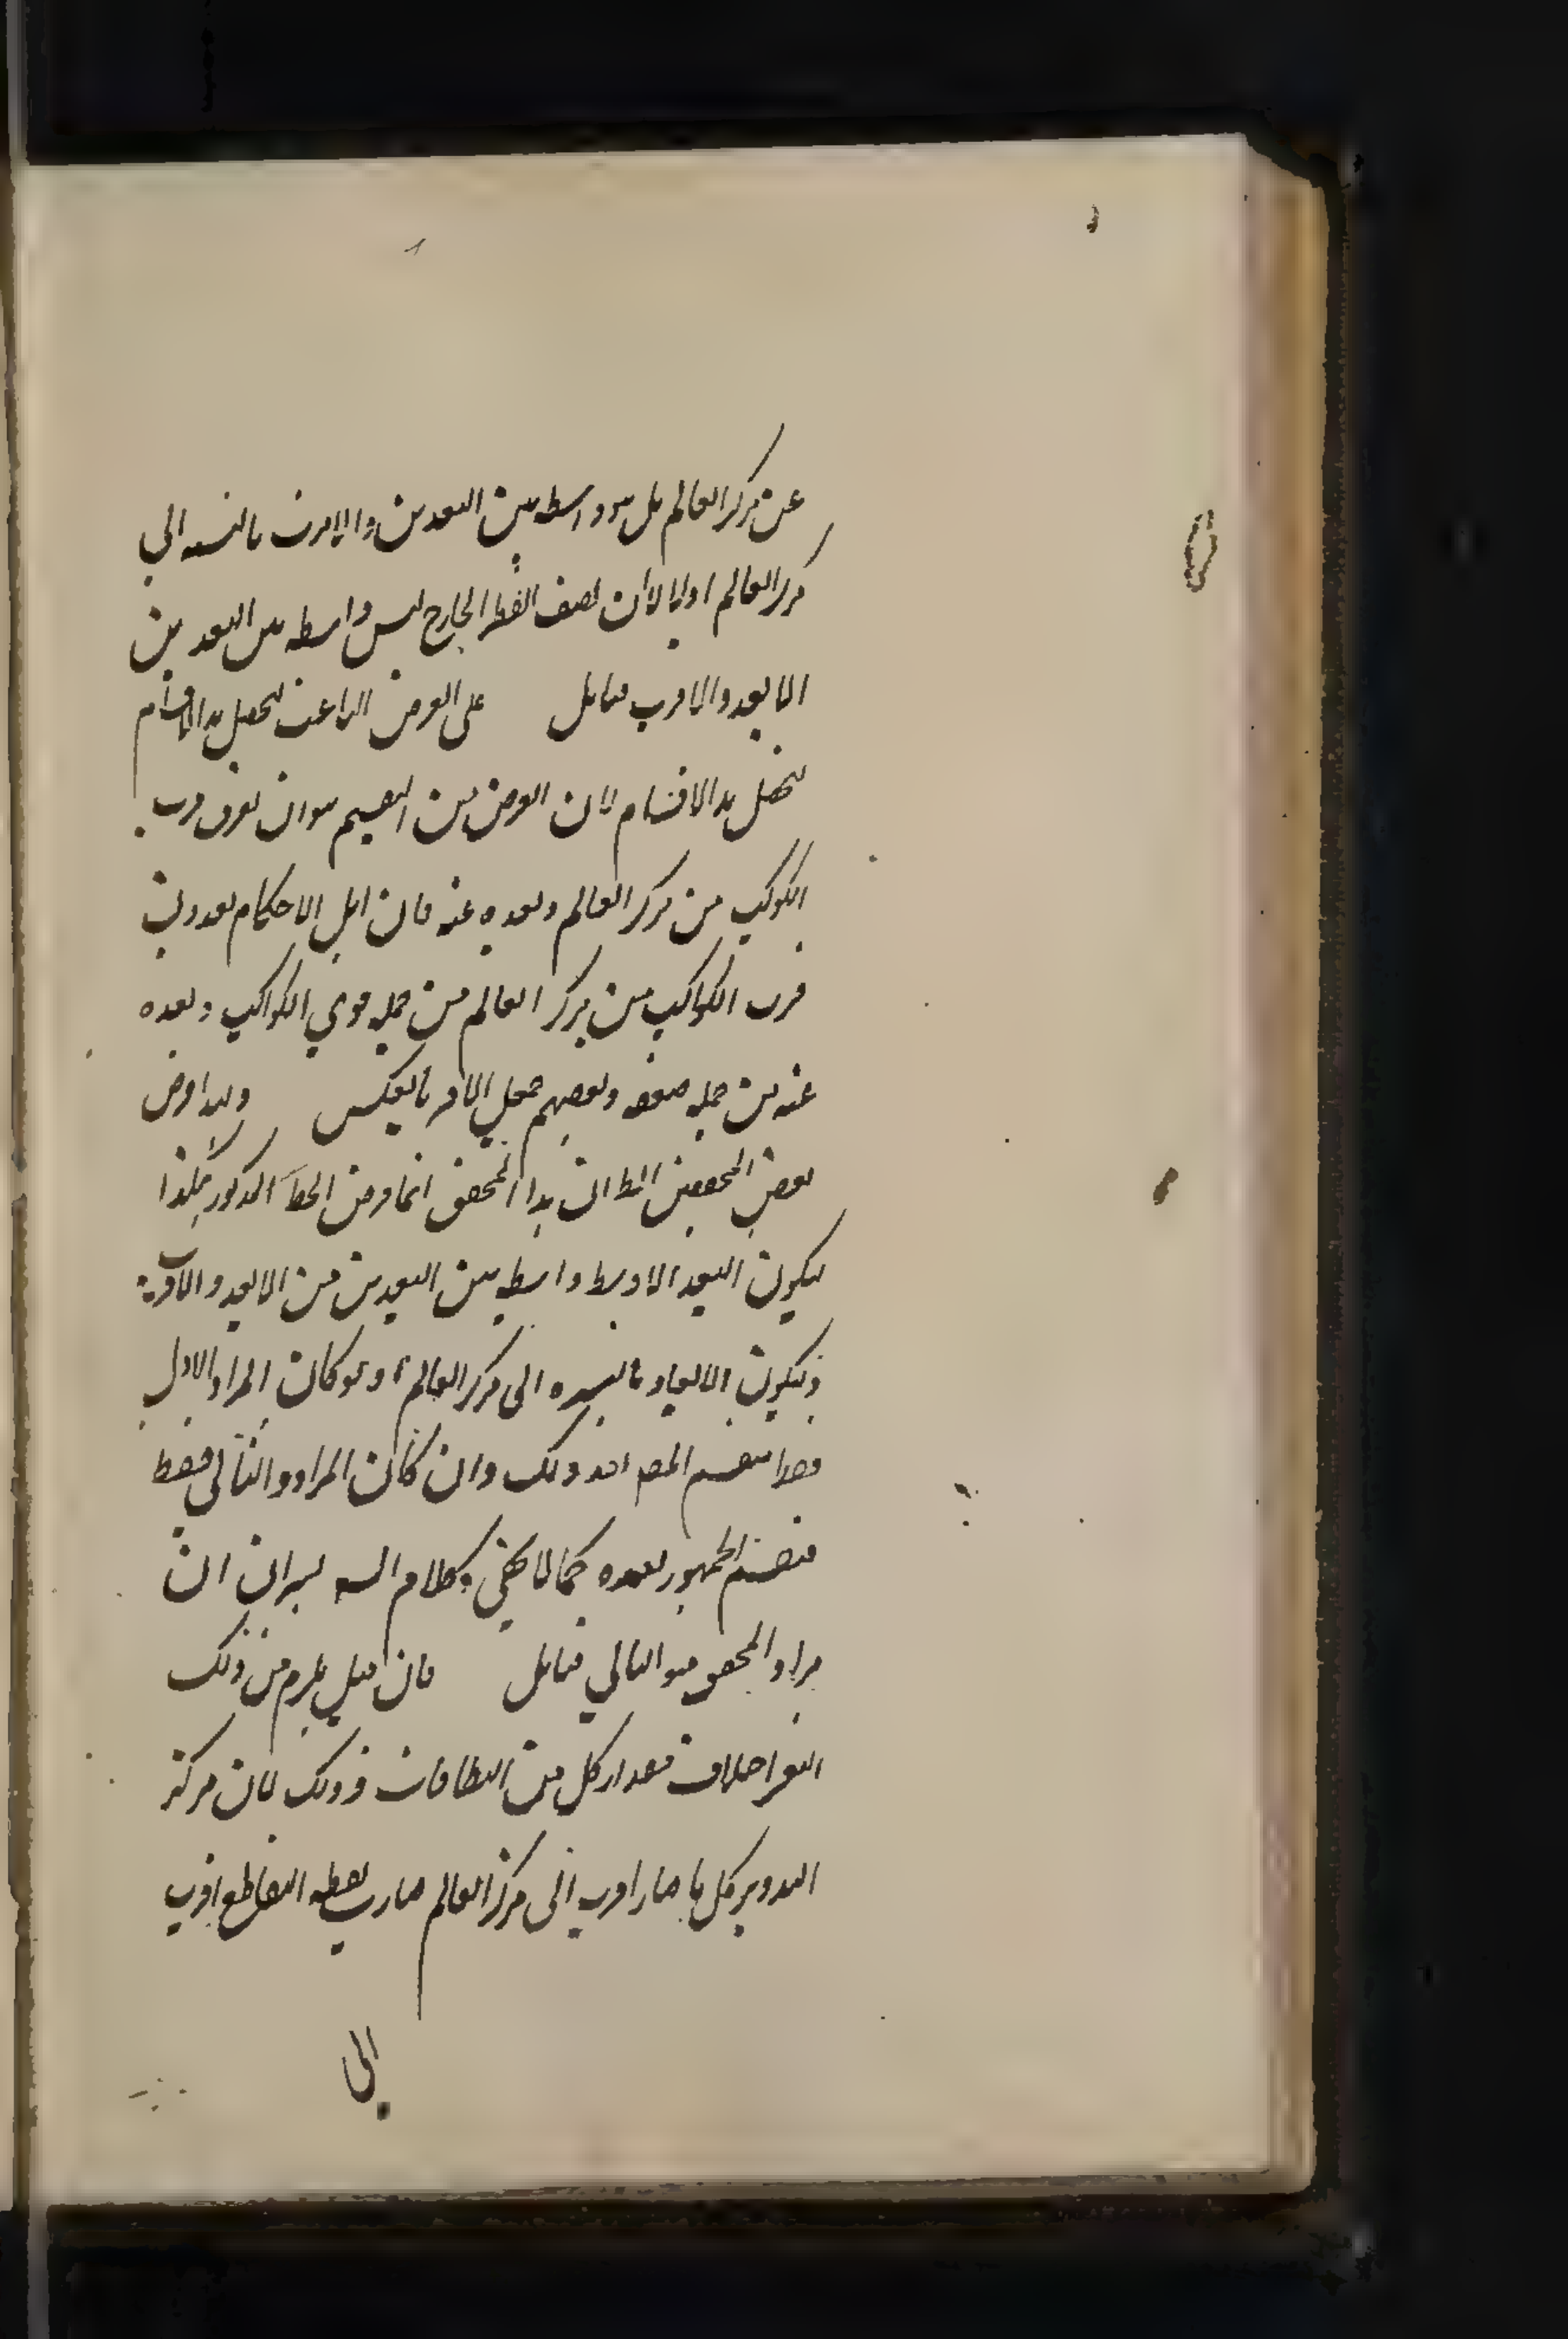 عن مركز العالم بل هو واسطه بين البعدين والاقرب بالنسبه الى
مركز العالم اولا لان نصف القطر الخارج ليس واسطه بين البعدين
الابعد والاقرب فتامل على الغرض الباعث لتحصيل هذا الاقسام
لتحصل هذا الاقسام لان الغرض من التقسيم هو ان يعرف قرب
الكوكب من مركز العالم وبعده عنه فان اهل الاحكام يعدون
قرب الكواكب من مركز العالم من جمله قوي الكواكب وبعده
عنه من جمله ضعفه وبعضهم جعل الامر بالعكس ولهذا فرض
بعض المحققين الظ ان هذا المحقق انما فرض الخط المذكور هكذا
ليكون البعد الاوسط واسطه بين البعدين من الابعد والاقرب
وليكون الابعاد بالنسبه الى مركز العالم ولو كان المراد الاول
المص ذلك وان كان المراد والثاني فقط
فتقسيم الجمهور يفيده كما لا يخفى وكلام السيد ان
مراد المحقق هو الثاني فتامل فان قيل يلزم من ذلك
اختلاف مقدار كل من النطاقات وذلك لان مركز
التدوير كل ما صار اقرب الى مركز العالم صارت نقطه التقاطع اقرب
الى